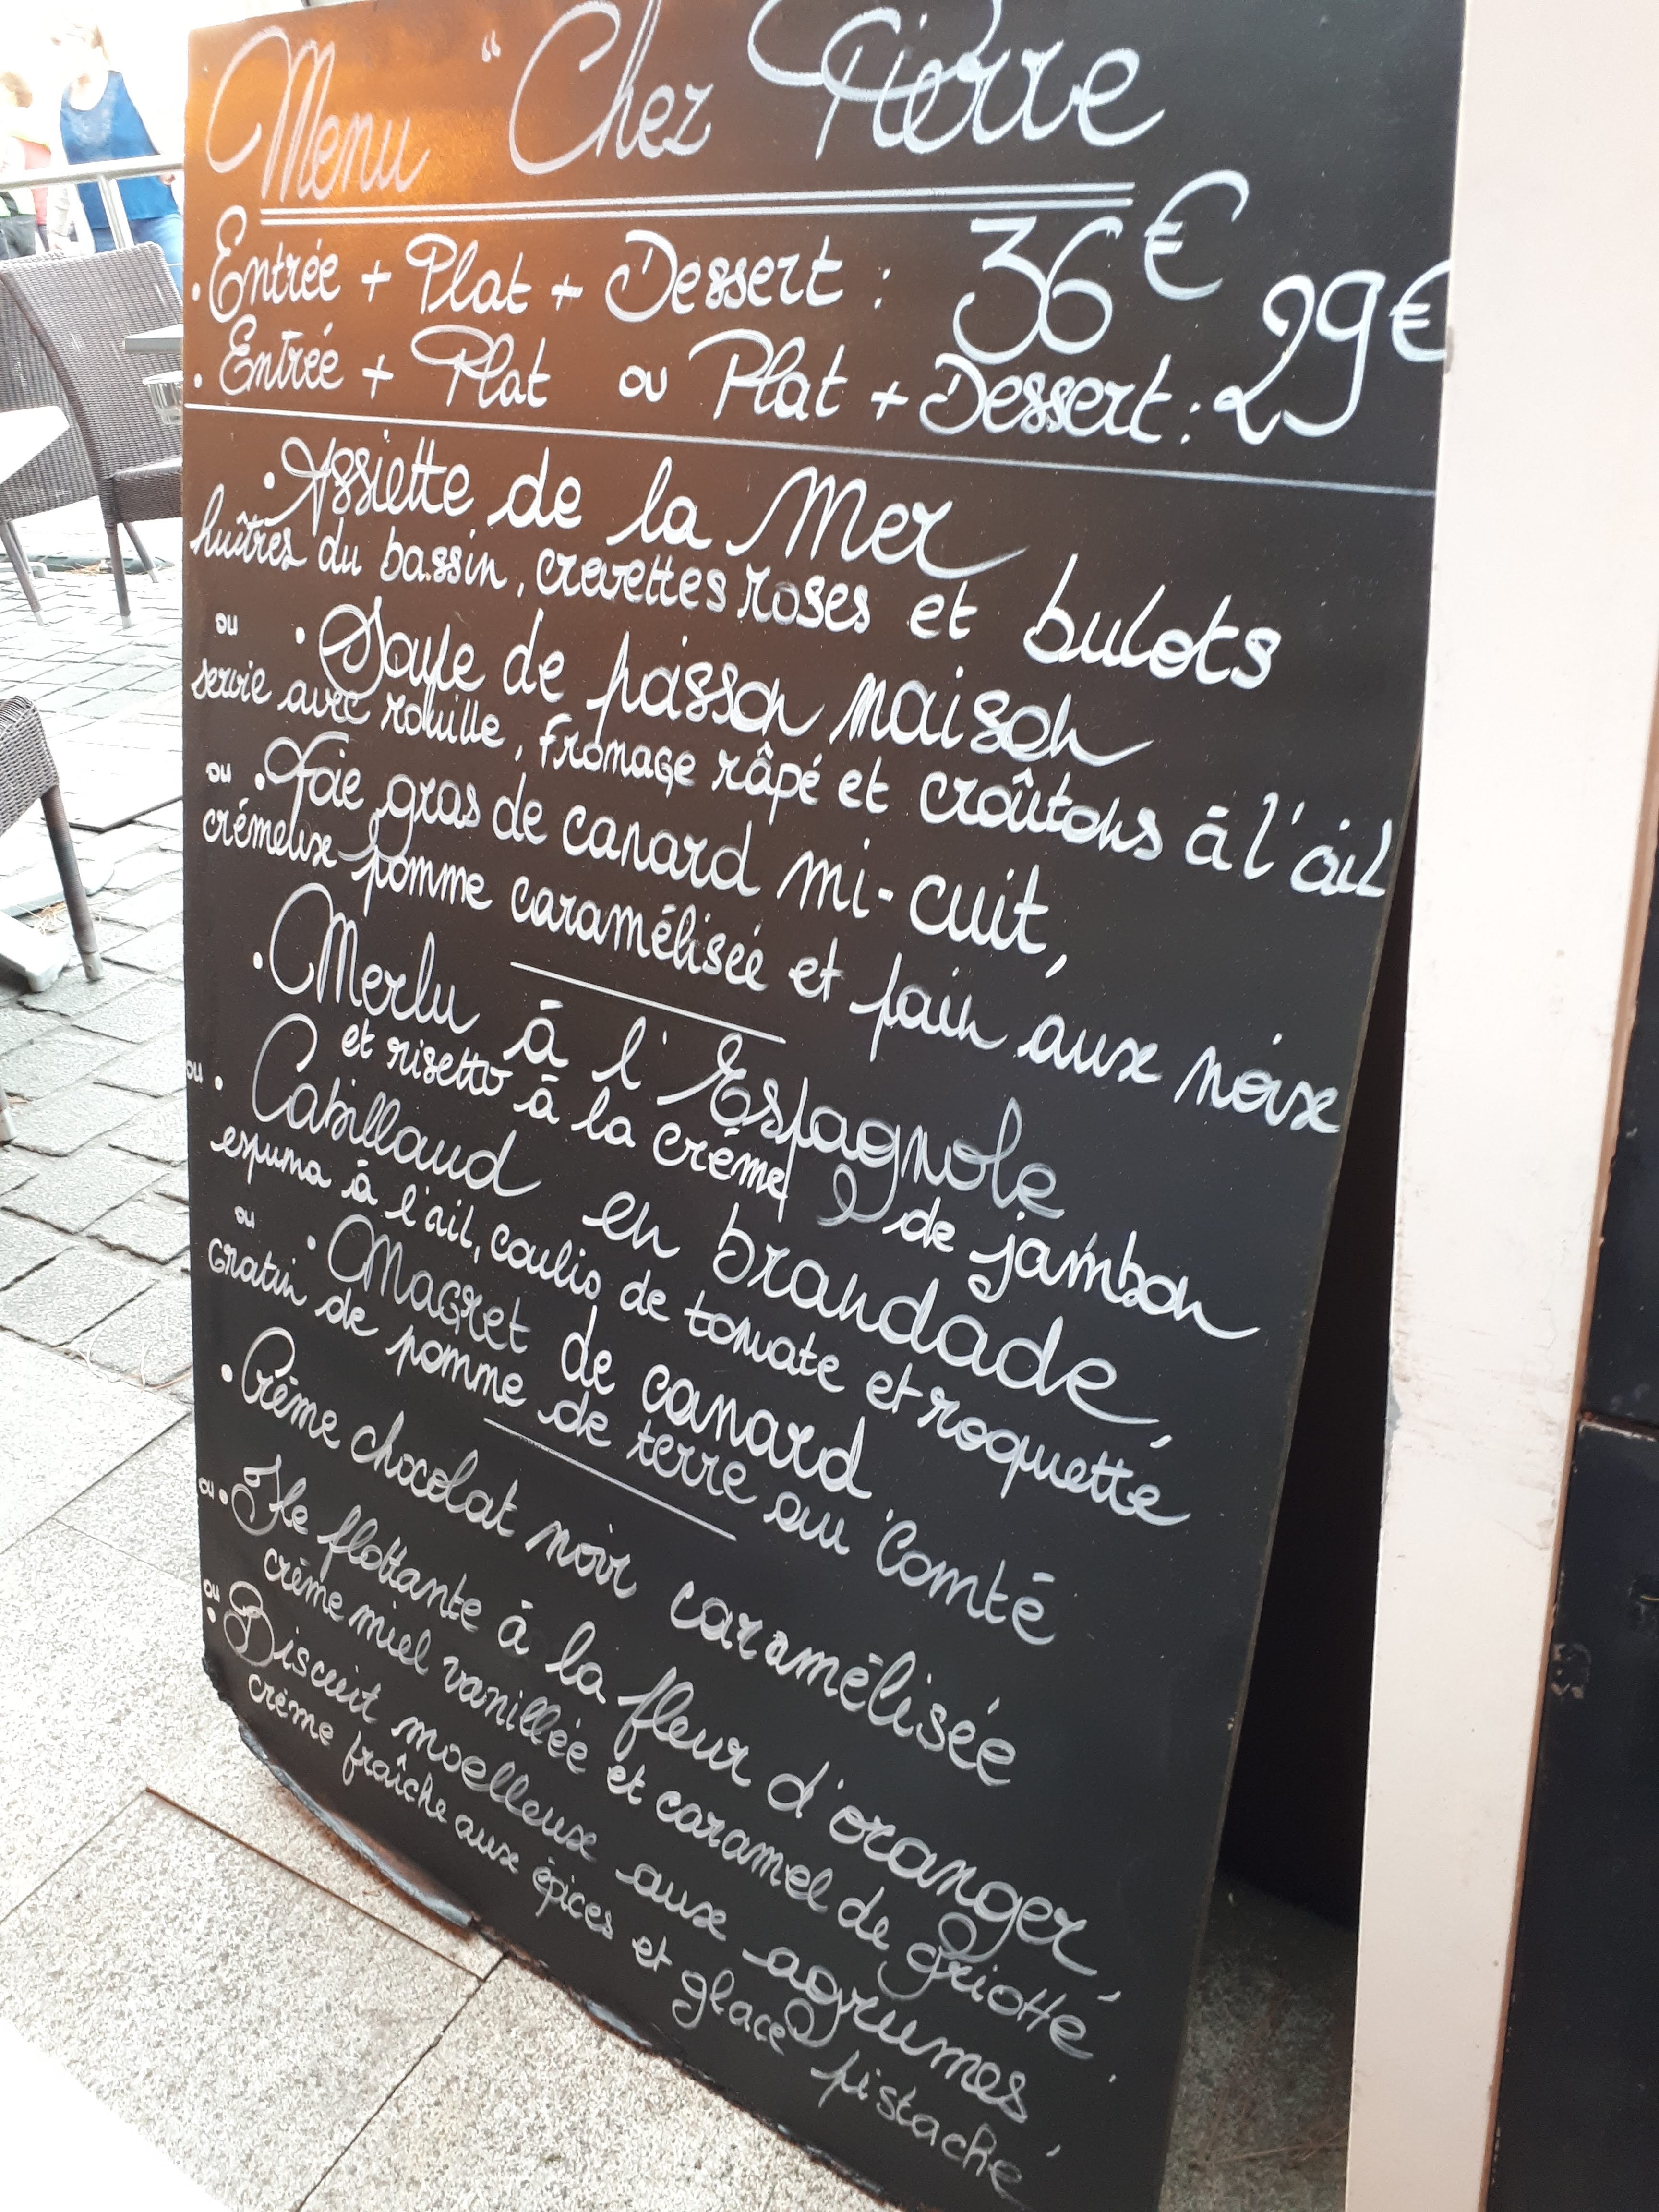 Menu "Chez Pierre
. Entrée + Plat + Dessert : 36€
. Entrée + Plat ou Plat + Dessert : 29€
. Assiette de la Mer
huîtres du bassin, crevettes roses et bulots
ou . Soupe de poisson maison
servie avec rouille, fromage râpé et croûtons à l'ail
ou . Foie gras de canard mi-cuit,
crémeux pomme caramélisée et pain aux noix
. Merlu à l'Espagnole
et risotto à la crème de jambon
ou . Cabillaud en brandade,
espuma à l'ail, coulis de tomate et roquette
ou . Magret de canard,
Gratin de pomme de terre au Comté
. Crème chocolat noir caramélisée
ou . Ile flottante à la fleur d'oranger,
crème miel vanillée et caramel de griotte.
ou . Biscuit moelleux aux agrumes,
crème fraîche aux épices et glace pistache